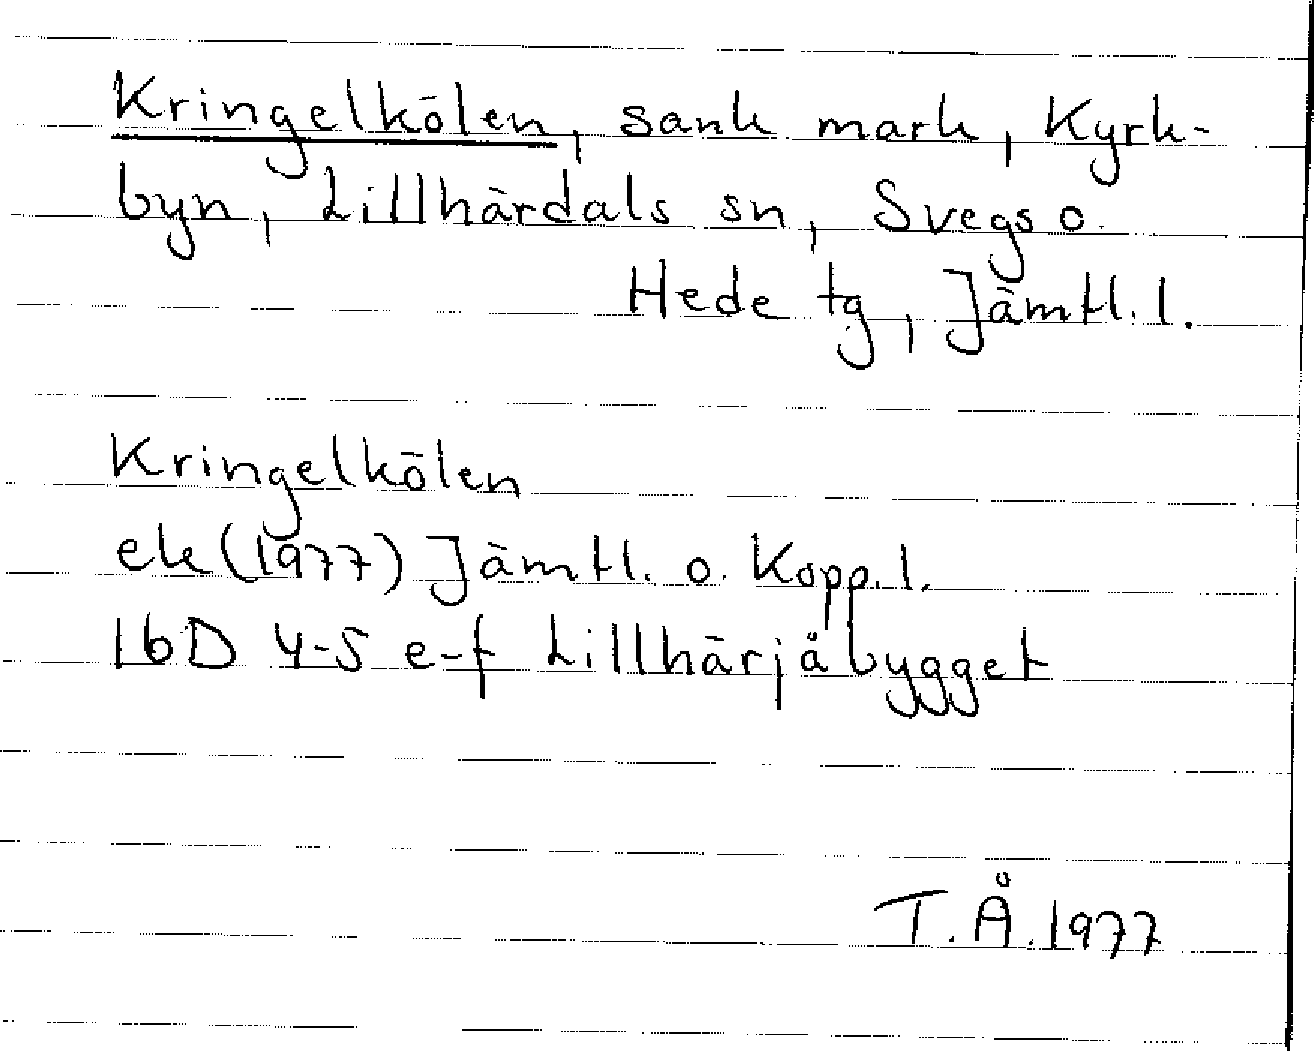 Kringelkölen, sank mark, Kyrk-
byn, Lillhärdals sn, Svegs o.
Hede tg, Jämtl. l.
Kringelkölen
ek (1977) Jämtl. o. Kopp. l.
16D 4-5 e-f Lillhärjåbygget
T. Å. 1977